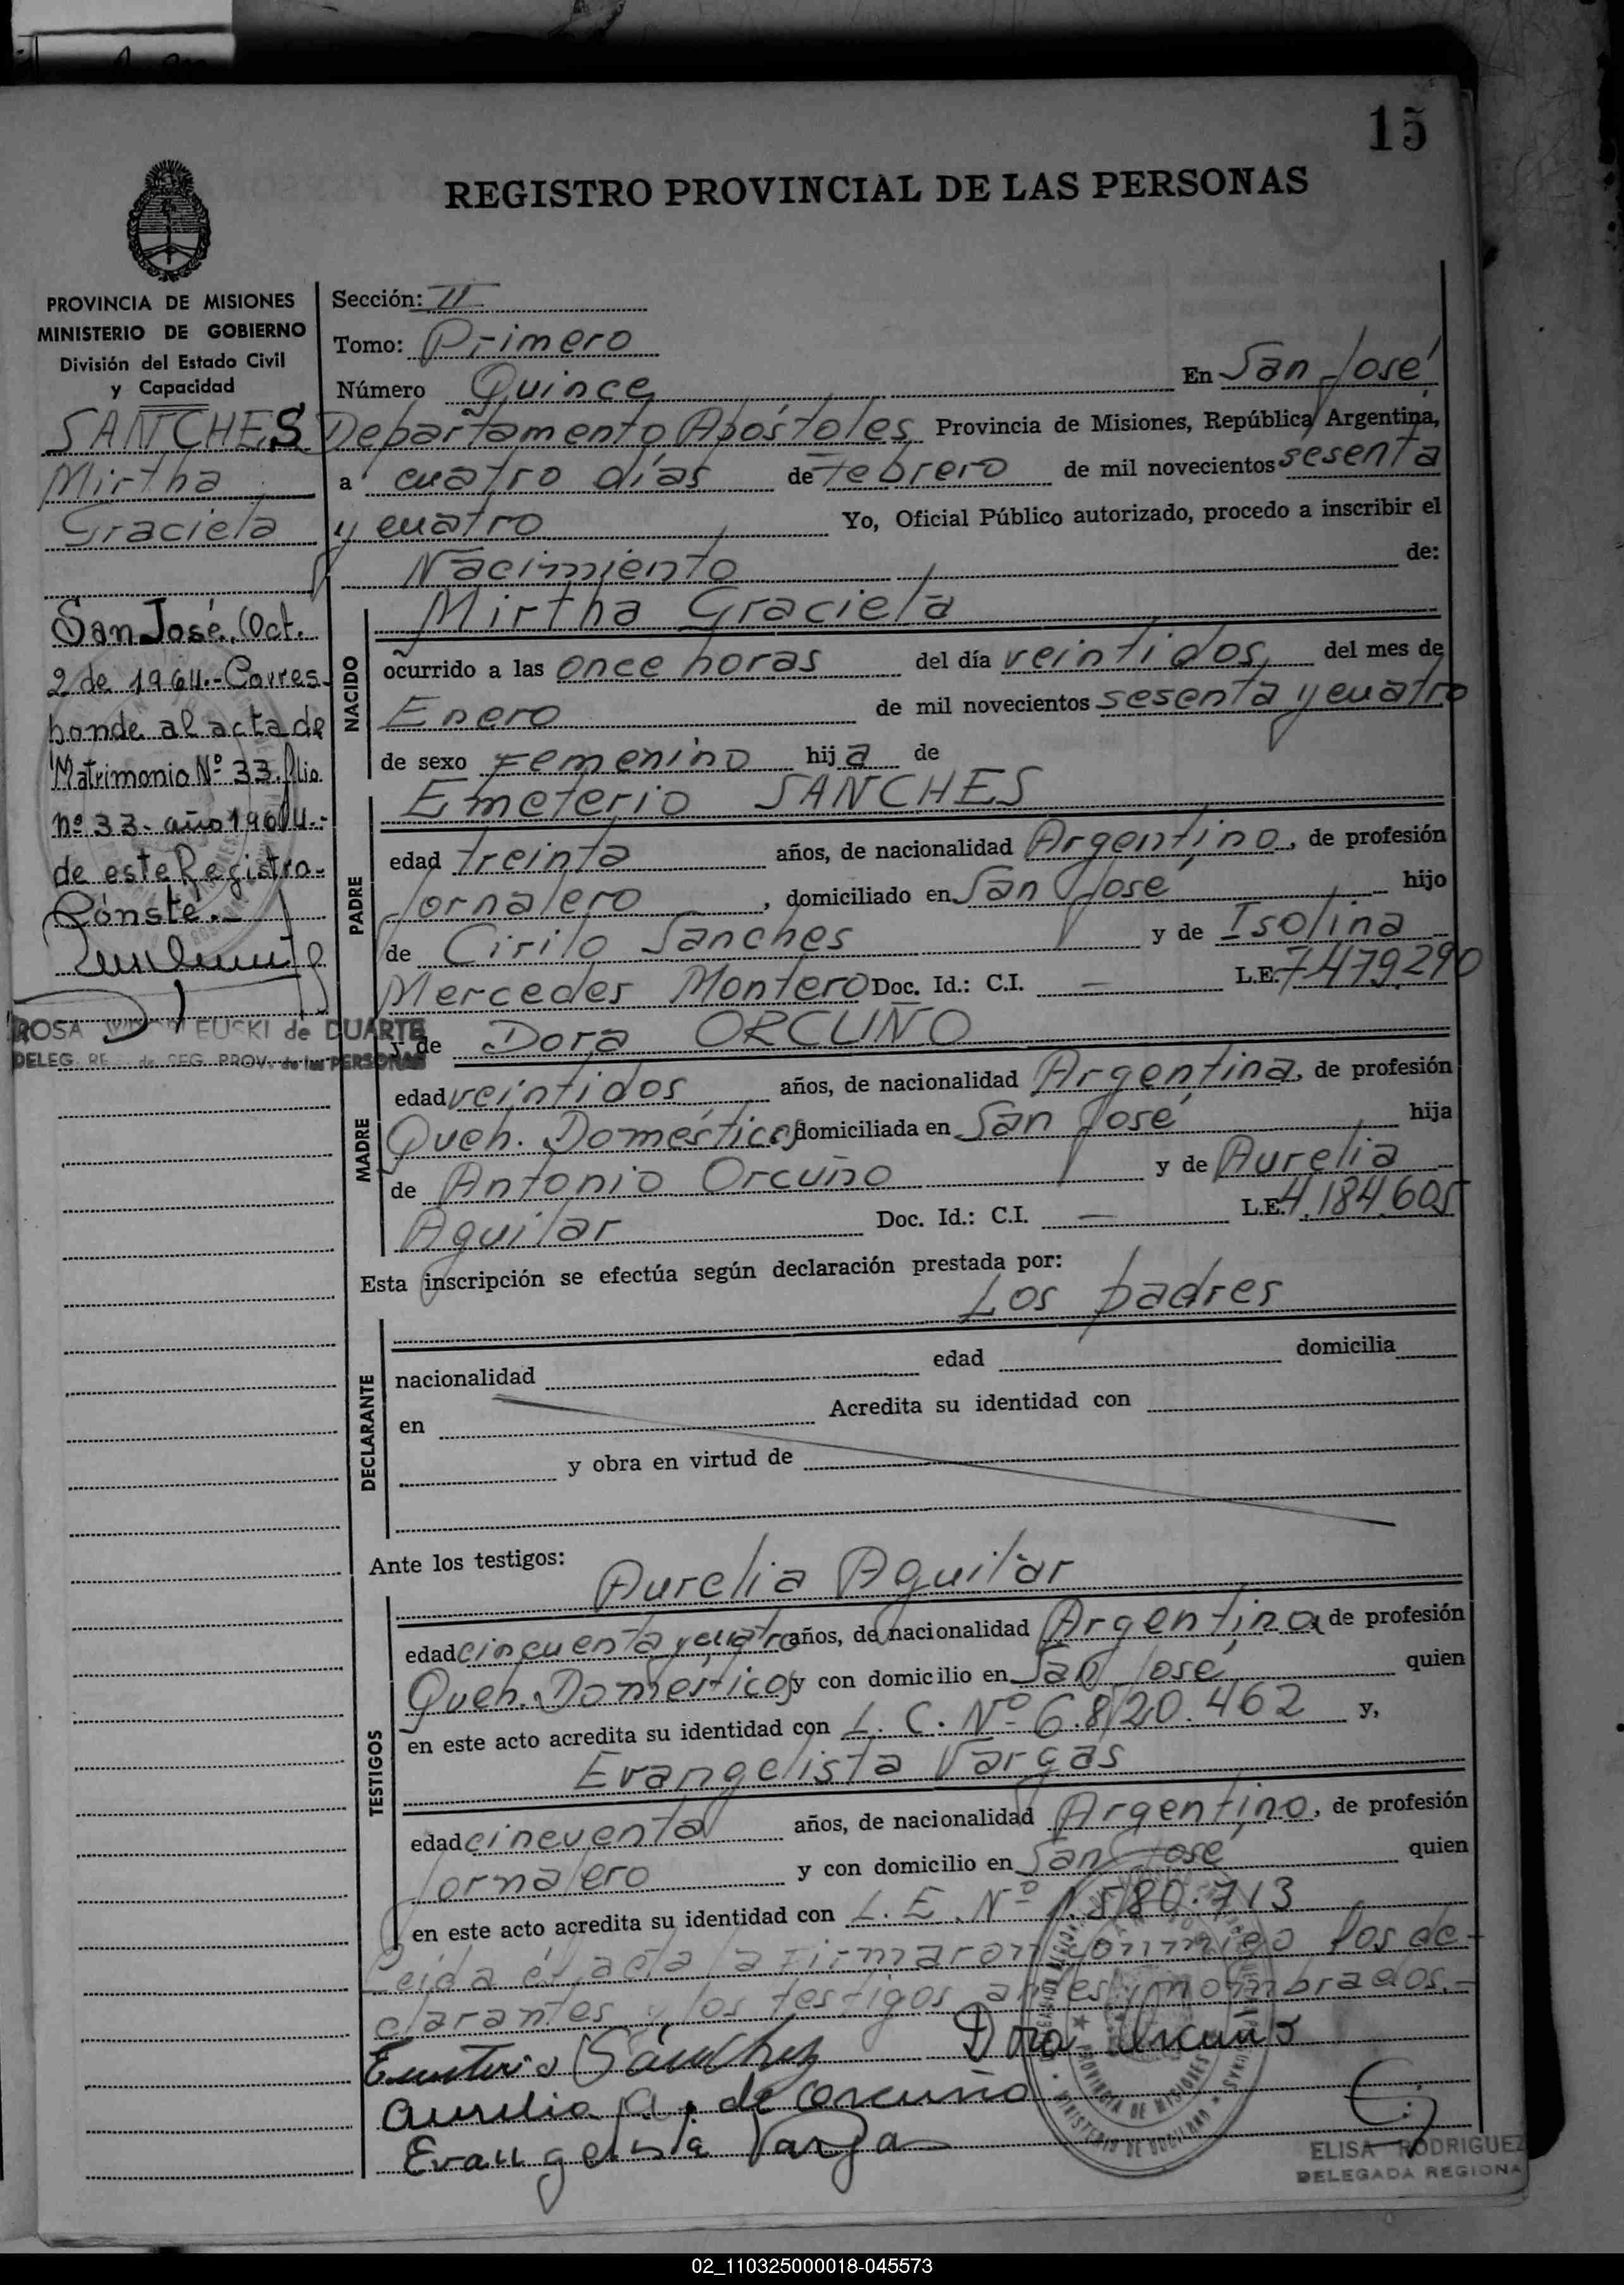 15
REGISTRO PROVINCIAL DE LAS PERSONAS
PROVINCIA DE MISIONES
MINISTERIO DE GOBIERNO
División del Estado Civil
y Capacidad
SANCHES
Mirtha
Graciela
San José, Oct.
2 de 1964.- Corres-
ponde al acta de
Matrimonio Nº 33. folio
nº 33- año 1964.-
de este Registro-
Conste.-
ROSA EUSKI de DUARTE
DELEG. RE de SEG. PROV. de las PERSONAS
Sección: II
Tomo: Primero
Número Quince En San José
Departamento Apóstoles Provincia de Misiones, República Argentina,
a cuatro días de febrero de mil novecientos sesenta
y cuatro Yo, Oficial Público autorizado, procedo a inscribir el
Nacimiento de:
NACIDO
Mirtha Graciela
ocurrido a las once horas del día veintidos, del mes de
Enero de mil novecientos sesenta y cuatro
de sexo Femenino hija de
PADRE
Emeterio SANCHES
edad treinta años, de nacionalidad Argentino, de profesión
Jornalero, domiciliado en San José hijo
de Cirilo Sanches y de Isolina
Mercedes Montero Doc. Id.: C.I. — L.E. 7.479.290
MADRE
y de Dora ORCUÑO
edad veintidos años, de nacionalidad Argentina, de profesión
Queh. Domésticos domiciliada en San José hija
de Antonio Orcuño y de Aurelia
Aguilar Doc. Id.: C.I. — L.E. 4.184.605
Esta inscripción se efectúa según declaración prestada por:
Los padres
DECLARANTE
nacionalidad edad domicilia
en Acredita su identidad con
y obra en virtud de
Ante los testigos:
TESTIGOS
Aurelia Aguilar
edad cincuenta y cuatro años, de nacionalidad Argentina, de profesión
Queh. Domésticos y con domicilio en San José quien
en este acto acredita su identidad con L. C. Nº 6.820.462 y,
Evangelista Vargas
edad cincuenta años, de nacionalidad Argentino, de profesión
Jornalero y con domicilio en San José quien
en este acto acredita su identidad con L. E. Nº 1.580.713
Leída el acta la firmaron conmigo los de-
clarantes y los testigos antes nombrados.-
Emeterio Sánchez Dora Orcuño
Aurelia A. de Orcuño
Evangelista Vargas
PROVINCIA DE MISIONES
ELISA RODRIGUEZ
DELEGADA REGIONA
02_110325000018-045573